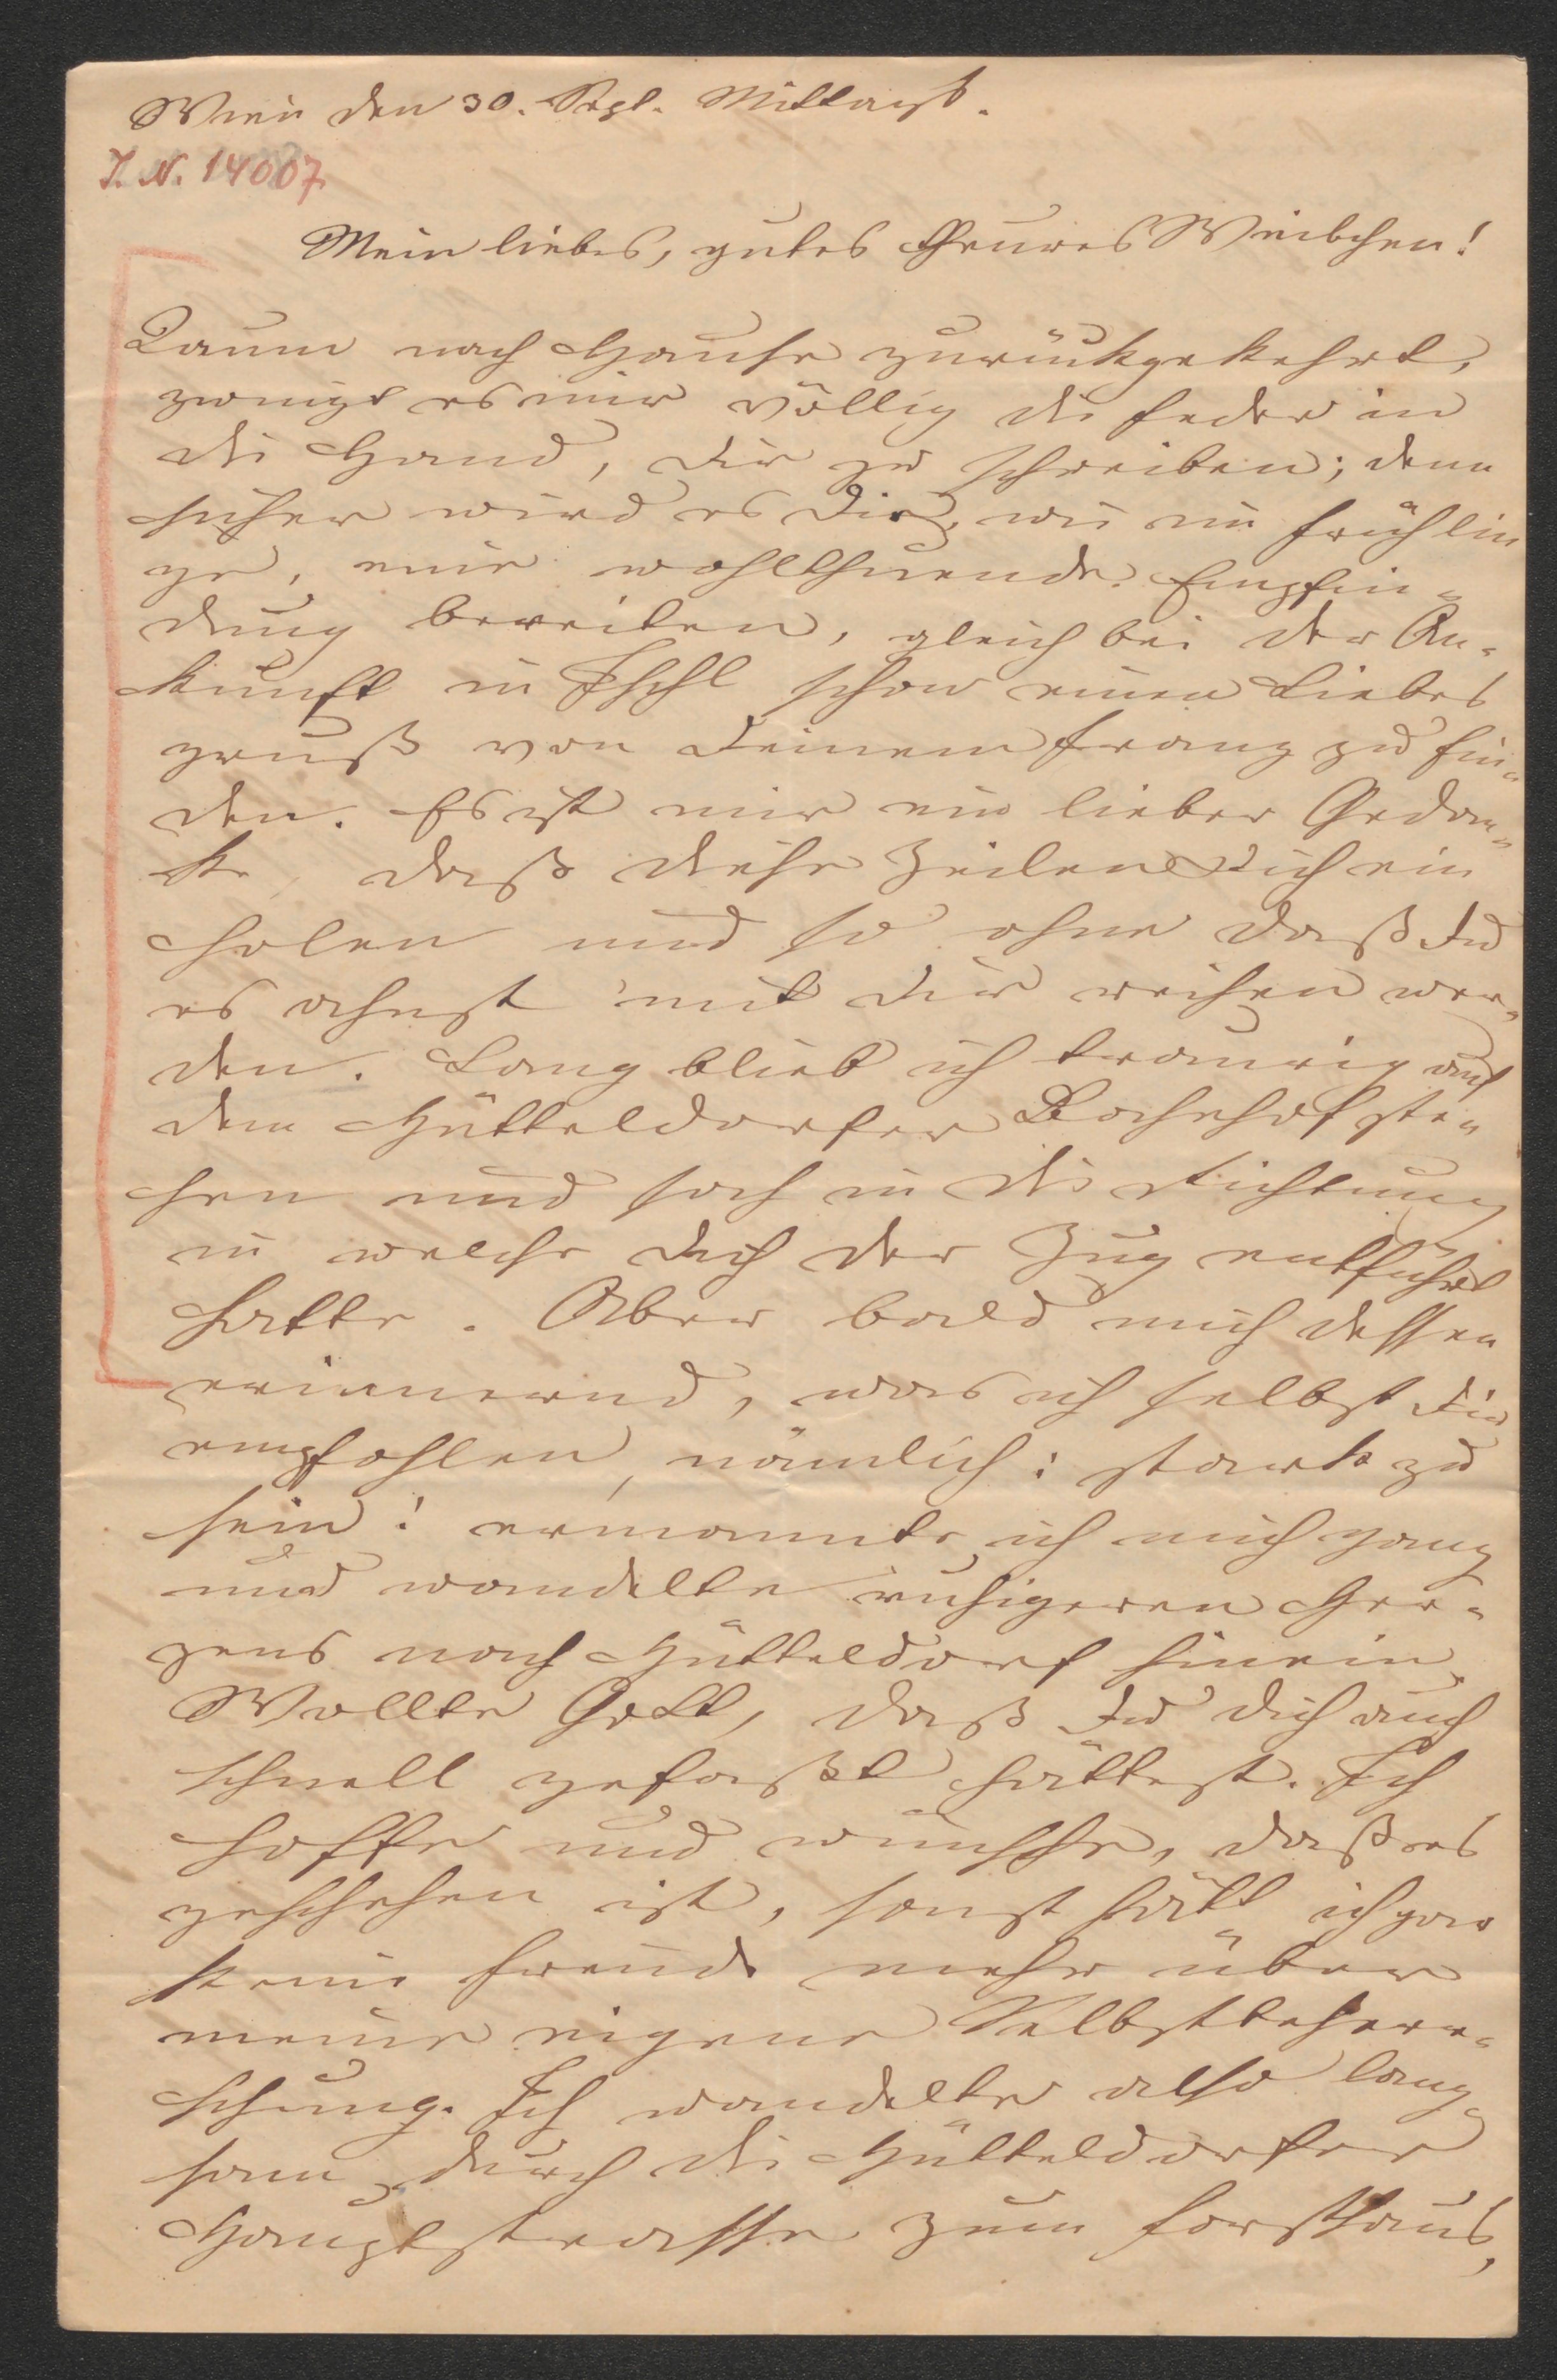 Wien den 30. Sept. Mittags.
I. N. 14007
Mein liebes, gutes theures Weibchen!
Kaum nach Hause zurückgekehrt,
zwingt es mir völlig die Feder in
die Hand, Dir zu schreiben; denn
sicher wird es Dir, wie im Frühlin
ge, eine wohlthuende Empfin-
dung bereiten, gleich bei der An-
kunft in Ischl schon einen Liebes
gruß von Deinem Franz zu fin-
den. Es ist mir ein lieber Gedan-
ke, daß diese Zeilen Dich ein
holen und so ohne daß Du
es ahnst mit Dir reisen wer-
den. Lang blieb ich traurig auf
dem Hütteldorfer Bahnhof ste-
hen und sah in die Richtung
in welche Dich der Zug entführt
hatte. Aber bald mich dessen
erinnernd, was ich selbst Dir
empfohlen, nämlich: stark zu
sein! ermannte ich mich ganz
und wandelte ruhigeren Her-
zens nach Hütteldorf hinein.
Wollte Gott, daß Du Dich auch
schnell gefaßt hättest. Ich
hoffe und wünsche, daß es
geschehen ist, sonst hätt ich gar
keine Freude mehr über
meine eigene Selbstbeherr-
schung. Ich wandelte also lang-
sam durch die Hütteldorfer
Hauptstrasse zum Forsthaus,